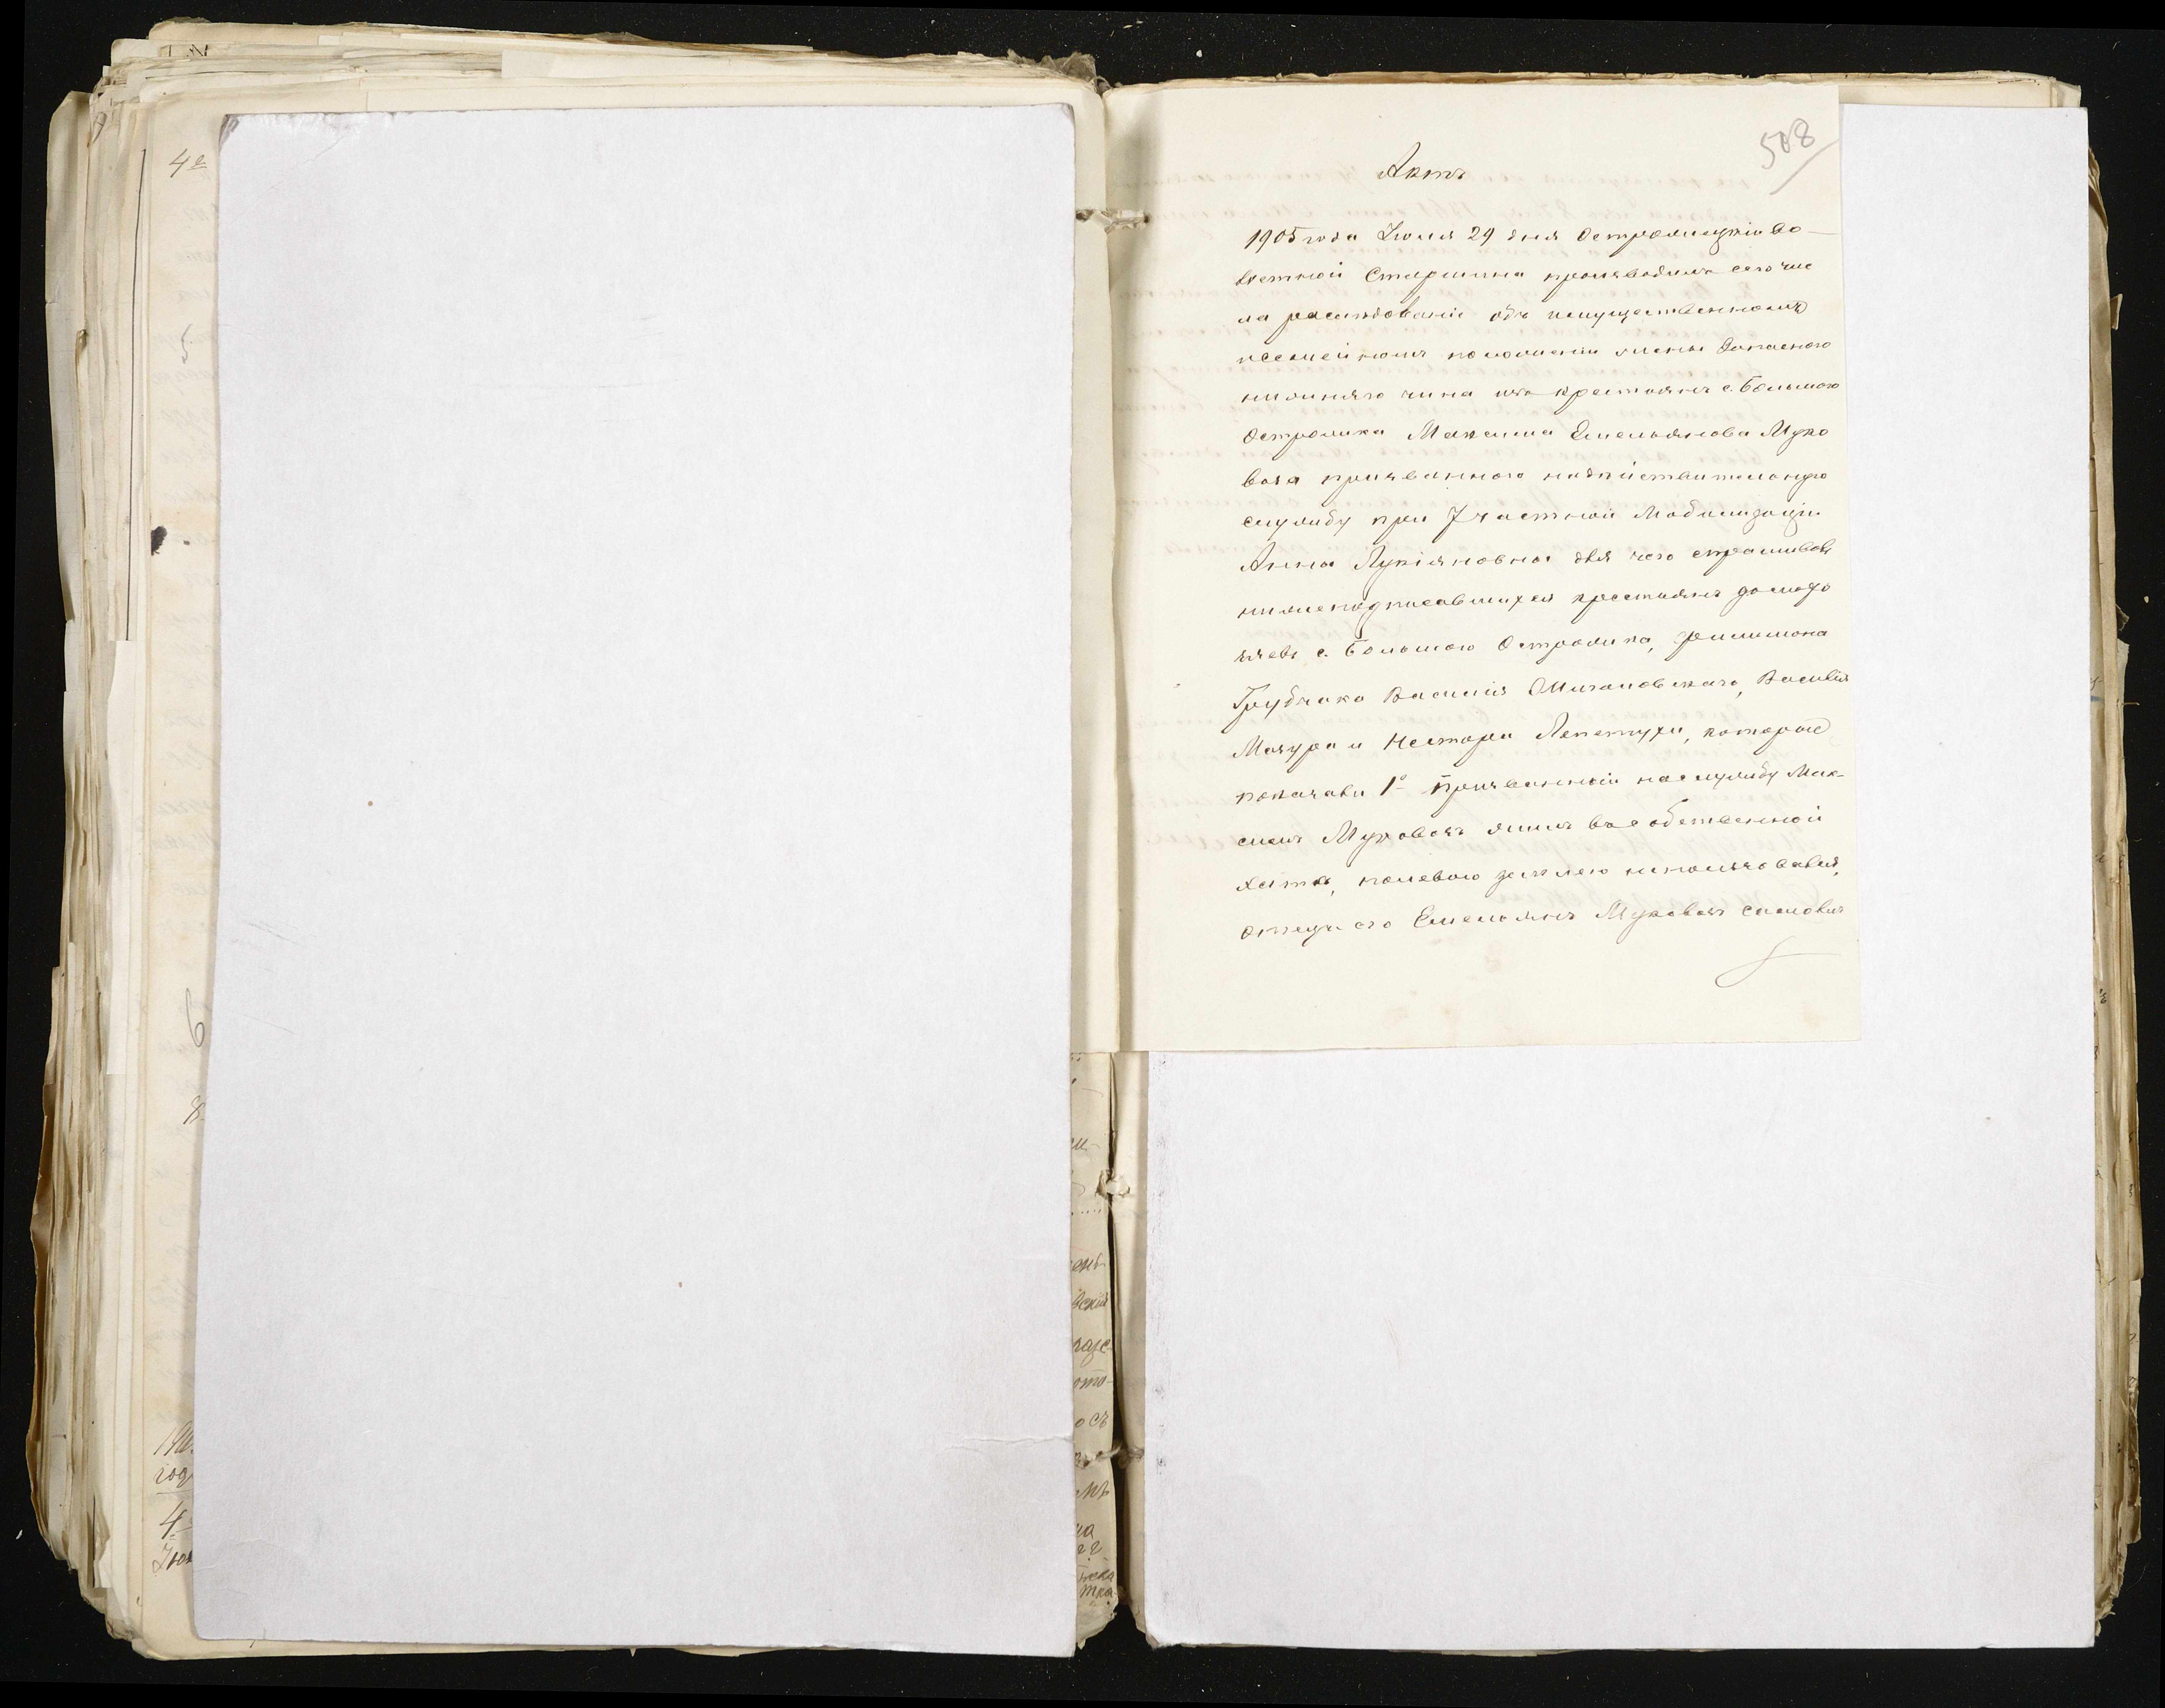 508
Актъ
1905 года Іюля 29 дня Острожицкій Во-
лостной Старшина производилъ сего чис
ла разслѣдованіе объ имущественномъ
и семейномъ положеніи жены Запасного
нижняго чина изъ крестьянъ с. Большого
Острожка Максима Емельянова Муко
воза призваннаго на дѣйствительную
службу при 7 частной мобилизаціи
Анна Лукіяновна для чего спрашивалъ
нижеподписавшихся крестьянъ домохо
зяевъ с. Большого Острожка, Филимона
Грубчака Василія Василія
Мазура и Нестора Лепетухи, которые
показали 1° Призванный на службу Мак-
симъ Муковозъ жилъ въ собственной
хатѣ, полевою землею не пользовался,
отецъ его Емельянъ Муковозъ
4е
5
6